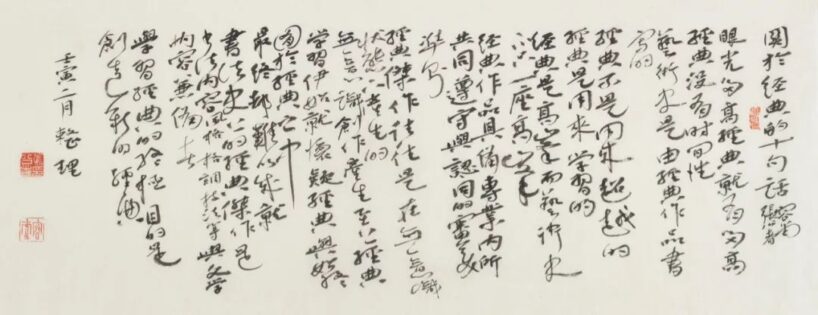 關於經典的十句話
眼光多高經典就有多高
經典沒有時間性
藝術史是由經典作品書
寫的
經典不是用來超越的
經典是用來學習的
經典是高峯而藝術史
一座高峯
經典作品具備專業內所
共同遵守與認同的審美
準則
經典傑作往往是在無意識
狀態產生的
無意識創作產生至上經典
學習伊始就懷疑經典與始終
囿於經典之中
最終都難以成就
書法史上的經典傑作是
書法內容風格格調技法等與文學
內容兼備
學習經典的終極目的是
創造新的經典
壬寅二月整理